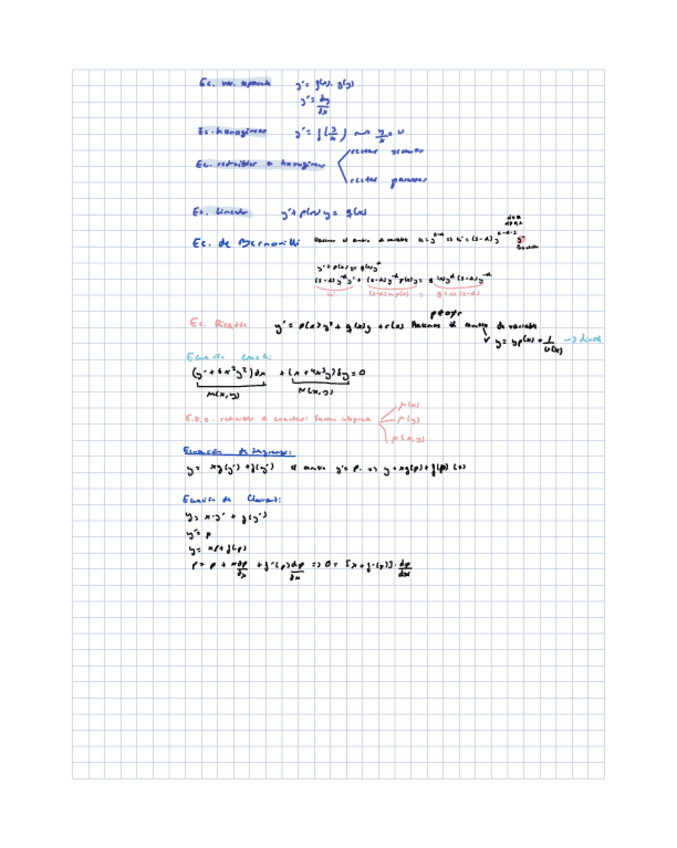 Ec. var. separada y' = f(x)·g(y)
y' = dy/dx
Ec. homogénea y' = f(y/x) → y/x = u
Ec. reducibles a homogéneas
rectas
rectas paralelas
Ec. lineales y' + p(x) y = q(x)
Ec. de Bernoulli Hacemos el cambio de variable
y' + p(x)y = q(x)y^α
(1-α)y^-α y' + (1-α)y^-α p(x)y = q(x)y^α (1-α)y^-α
u' (1-α)u p(x) = q(x)(1-α)
Ec. Ricatti y' = p(x)y² + q(x)y + r(x) Hacemos el cambio de variable
y = yp(x) + 1/u(x) → lineal
Ecuación exacta:
(y + 6x²y²)dx + (x + 4x³y)dy = 0
M(x,y) N(x,y)
E.D.O. reducible a exactas: factor integrante
μ(x)
μ(y)
μ(x,y)
Ecuación de Lagrange:
y = xg(y') + f(y') el cambio y' = p. => y = xg(p) + f(p)
Ecuación de Clairaut:
y = x·y' + f(y')
y' = p
y = xp + f(p)
p = p + x dp/dx + f'(p) dp/dx => 0 = [x + f'(p)]· dp/dx